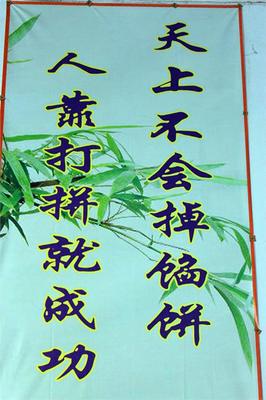 天上不会掉馅饼
人靠打拼就成功